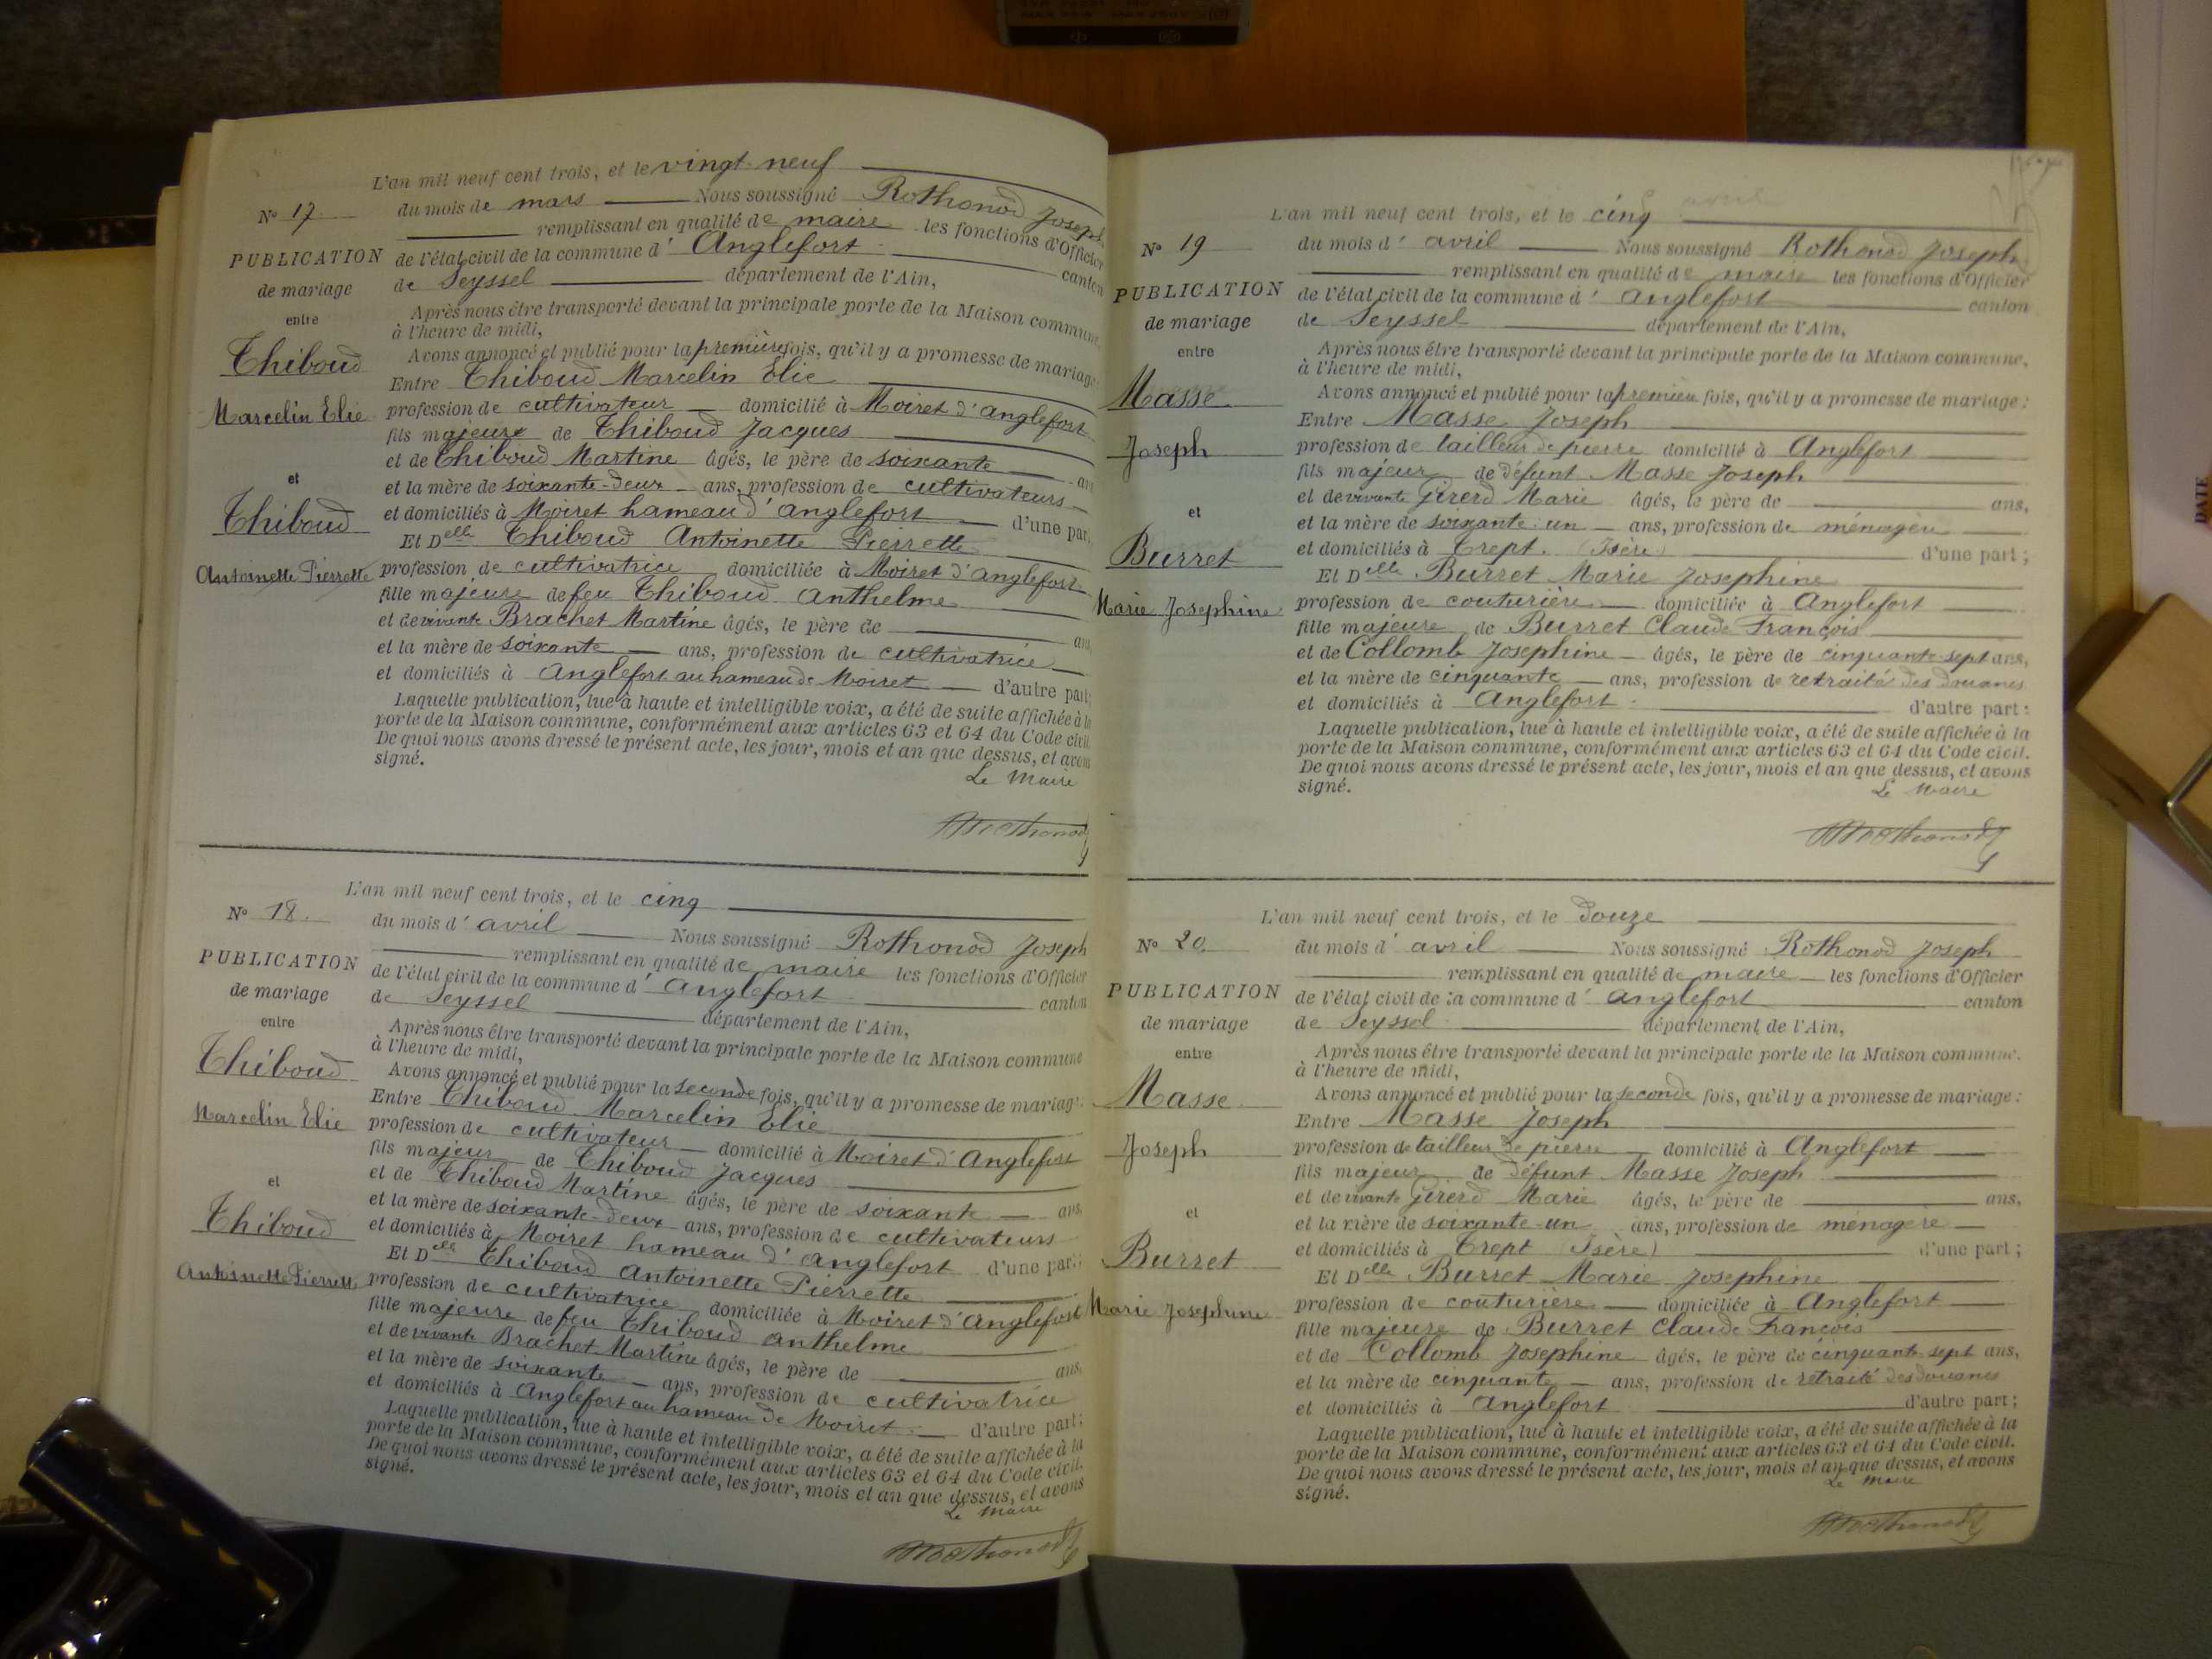 L'an mil neuf cent trois, et le vingt-neuf
N° 17
du mois de mars Nous soussigné Rothonod Joseph
remplissant en qualité de maire les fonctions d'Officier
PUBLICATION
de mariage
entre
Thiboud
Marcelin Elie
et
Thiboud
Antoinette Pierrette
de l'état civil de la commune d' Anglefort canton
de Seyssel département de l'Ain,
Après nous être transporté devant la principale porte de la Maison commune,
à l'heure de midi,
Avons annoncé et publié pour la première fois, qu'il y a promesse de mariage
Entre Thiboud Marcelin Elie
profession de cultivateur domicilié à Moiret d'Anglefort
fils majeur de Thiboud Jacques
et de Thiboud Martine âgés, le père de soixante an
et la mère de soixante-deux ans, profession de cultivateurs
et domiciliés à Moiret hameau d'Anglefort d'une part
Et Delle Thiboud Antoinette Pierrette
profession de cultivatrice domiciliée à Moiret d'Anglefort
fille majeure de feu Thiboud Anthelme
et de vivante Brachet Martine âgés, le père de ans,
et la mère de soixante ans, profession de cultivatrice
et domiciliés à Anglefort au hameau de Moiret d'autre part;
Laquelle publication, lue à haute et intelligible voix, a été de suite affichée à la
porte de la Maison commune, conformément aux articles 63 et 64 du Code civil.
De quoi nous avons dressé le présent acte, les jour, mois et an que dessus, et avons
signé.
Le Maire
Rothonod
L'an mil neuf cent trois, et le cinq
N° 18.
du mois d' avril Nous soussigné Rothonod Joseph
remplissant en qualité de maire les fonctions d'Officier
PUBLICATION
de mariage
entre
Thiboud
Marcelin Elie
et
Thiboud
Antoinette Pierrette
de l'état civil de la commune d' Anglefort canton
de Seyssel département de l'Ain,
Après nous être transporté devant la principale porte de la Maison commune
à l'heure de midi,
Avons annoncé et publié pour la seconde fois, qu'il y a promesse de mariage:
Entre Thiboud Marcelin Elie
profession de cultivateur domicilié à Moiret d'Anglefort
fils majeur de Thiboud Jacques
et de Thiboud Martine âgés, le père de soixante ans,
et la mère de soixante-deux ans, profession de cultivateurs
et domiciliés à Moiret hameau d'Anglefort d'une part;
Et Delle Thiboud Antoinette Pierrette
profession de cultivatrice domiciliée à Moiret d'Anglefort
fille majeure de feu Thiboud Anthelme
et de vivante Brachet Martine âgés, le père de ans,
et la mère de soixante ans, profession de cultivatrice
et domiciliés à Anglefort au hameau de Moiret d'autre part;
Laquelle publication, lue à haute et intelligible voix, a été de suite affichée à la
porte de la Maison commune, conformément aux articles 63 et 64 du Code civil.
De quoi nous avons dressé le présent acte, les jour, mois et an que dessus, et avons
signé.
Le Maire
Rothonod
L'an mil neuf cent trois, et le cinq
N° 19
du mois d' avril Nous soussigné Rothonod Joseph
remplissant en qualité de maire les fonctions d'Officier
PUBLICATION
de mariage
entre
Masse
Joseph
et
Burret
Marie Josephine
de l'état civil de la commune d' Anglefort canton
de Seyssel département de l'Ain,
Après nous être transporté devant la principale porte de la Maison commune,
à l'heure de midi,
Avons annoncé et publié pour la première fois, qu'il y a promesse de mariage:
Entre Masse Joseph
profession de tailleur de pierre domicilié à Anglefort
fils majeur de défunt Masse Joseph
et de vivante Girerd Marie âgés, le père de ans,
et la mère de soixante-un ans, profession de ménagère
et domiciliés à Trept. (Isère) d'une part;
Et Delle Burret Marie Josephine
profession de couturière domiciliée à Anglefort
fille majeure de Burret Claude François
et de Collomb Josephine âgés, le père de cinquante-sept ans,
et la mère de cinquante ans, profession de retraité des douanes
et domiciliés à Anglefort d'autre part:
Laquelle publication, lue à haute et intelligible voix, a été de suite affichée à la
porte de la Maison commune, conformément aux articles 63 et 64 du Code civil.
De quoi nous avons dressé le présent acte, les jour, mois et an que dessus, et avons
signé.
Le Maire
Rothonod
L'an mil neuf cent trois, et le douze
N° 20.
du mois d' avril Nous soussigné Rothonod Joseph
remplissant en qualité de maire les fonctions d'Officier
PUBLICATION
de mariage
entre
Masse
Joseph
et
Burret
Marie Josephine
de l'état civil de la commune d' Anglefort canton
de Seyssel département de l'Ain,
Après nous être transporté devant la principale porte de la Maison commune.
à l'heure de midi,
Avons annoncé et publié pour la seconde fois, qu'il y a promesse de mariage:
Entre Masse Joseph
profession de tailleur de pierre domicilié à Anglefort
fils majeur de défunt Masse Joseph
et de vivante Girerd Marie âgés, le père de ans,
et la mère de soixante-un ans, profession de ménagère
et domiciliés à Trept (Isère) d'une part;
Et Delle Burret Marie Josephine
profession de couturière domiciliée à Anglefort
fille majeure de Burret Claude François
et de Collomb Josephine âgés, le père de cinquante sept ans,
et la mère de cinquante ans, profession de retraité des douanes
et domiciliés à Anglefort d'autre part;
Laquelle publication, lue à haute et intelligible voix, a été de suite affichée à la
porte de la Maison commune, conformément aux articles 63 et 64 du Code civil.
De quoi nous avons dressé le présent acte, les jour, mois et an que dessus, et avons
signé.
Le Maire
Rothonod
DATE